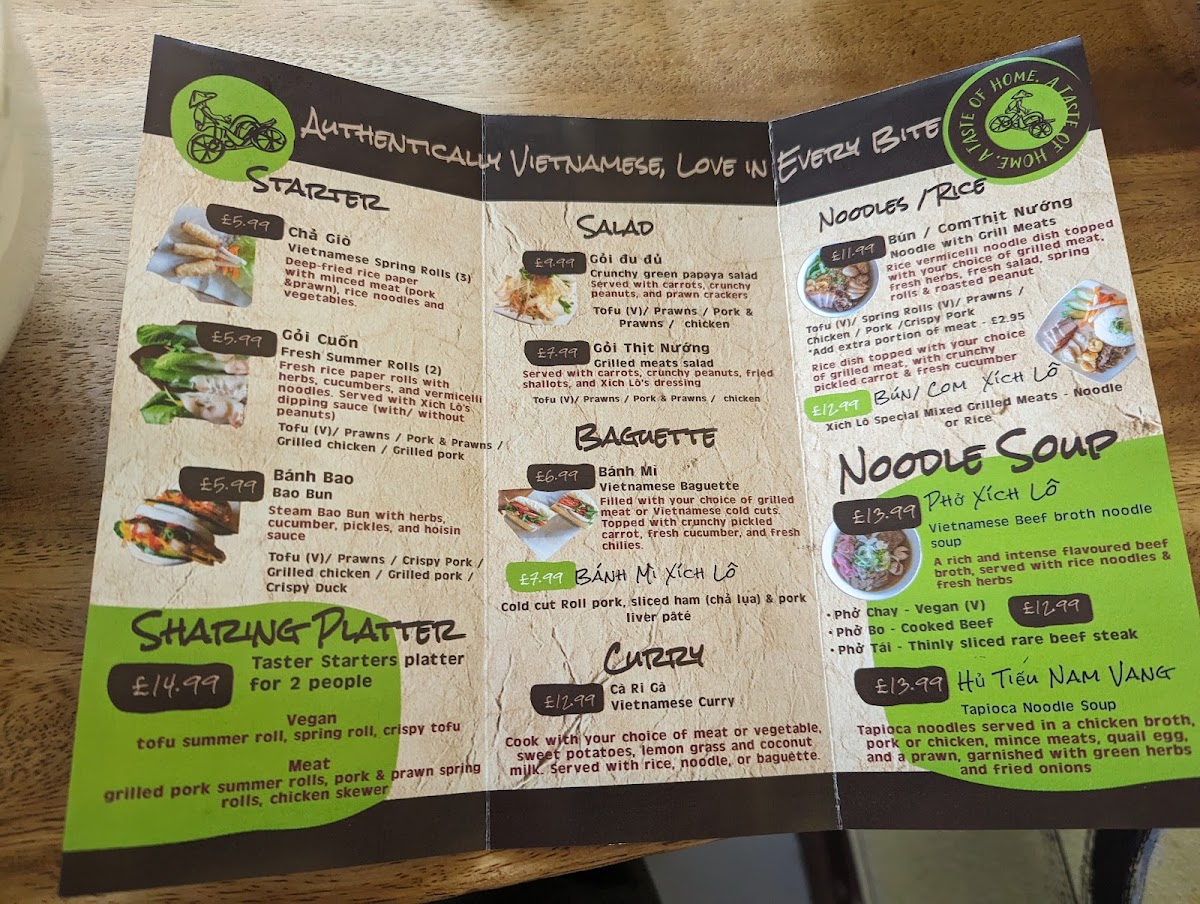 Authentically Vietnamese, Love in Every Bite
A TASTE OF HOME. A TASTE OF HOME.
Starter
£5.99
Chả Giò
Vietnamese Spring Rolls (3)
Deep-fried rice paper
with minced meat (pork
&prawn), rice noodles and
vegetables.
£5.99
Gỏi Cuốn
Fresh Summer Rolls (2)
Fresh rice paper rolls with
herbs, cucumbers, and vermicelli
noodles. Served with Xích Lô's
dipping sauce (with/ without
peanuts)
Tofu (V)/ Prawns / Pork & Prawns /
Grilled chicken / Grilled pork
£5.99
Bánh Bao
Bao Bun
Steam Bao Bun with herbs,
cucumber, pickles, and hoisin
sauce
Tofu (V)/ Prawns / Crispy Pork /
Grilled chicken / Grilled pork /
Crispy Duck
Sharing Platter
£14.99
Taster Starters platter
for 2 people
Vegan
tofu summer roll, spring roll, crispy tofu
Meat
grilled pork summer rolls, pork & prawn spring
rolls, chicken skewer
Salad
£9.99
Gỏi đu đủ
Crunchy green papaya salad
Served with carrots, crunchy
peanuts, and prawn crackers
Tofu (V)/ Prawns / Pork &
Prawns / chicken
£7.99
Gỏi Thịt Nướng
Grilled meats salad
Served with carrots, crunchy peanuts, fried
shallots, and Xich Lô's dressing
Tofu (V)/ Prawns / Pork & Prawns / chicken
Baguette
£6.99
Bánh Mì
Vietnamese Baguette
Filled with your choice of grilled
meat or Vietnamese cold cuts.
Topped with crunchy pickled
carrot, fresh cucumber, and fresh
chilies.
£7.99
Bánh Mì Xích Lô
Cold cut Roll pork, sliced ham (chả lụa) & pork
liver pâté
Curry
£12.99
Cà Ri Gà
Vietnamese Curry
Cook with your choice of meat or vegetable,
sweet potatoes, lemon grass and coconut
milk. Served with rice, noodle, or baguette.
Noodles /Rice
£11.99
Bún / ComThịt Nướng
Noodle with Grill Meats
Rice vermicelli noodle dish topped
with your choice of grilled meat,
fresh herbs, fresh salad, spring
rolls & roasted peanut
Tofu (V)/ Spring Rolls (V)/ Prawns /
Chicken / Pork /Crispy Pork
*Add extra portion of meat - £2.95
Rice dish topped with your choice
of grilled meat, with crunchy
pickled carrot & fresh cucumber
£12.99
Bún/ Com Xích Lô
Xích Lô Special Mixed Grilled Meats - Noodle
or Rice
Noodle Soup
£13.99
Phở Xích Lô
Vietnamese Beef broth noodle
soup
A rich and intense flavoured beef
broth, served with rice noodles &
fresh herbs
• Phở Chay - Vegan (V)
£12.99
• Phở Bo - Cooked Beef
• Phở Tái - Thinly sliced rare beef steak
£13.99
Hủ Tiếu Nam Vang
Tapioca Noodle Soup
Tapioca noodles served in a chicken broth,
pork or chicken, mince meats, quail egg,
and a prawn, garnished with green herbs
and fried onions